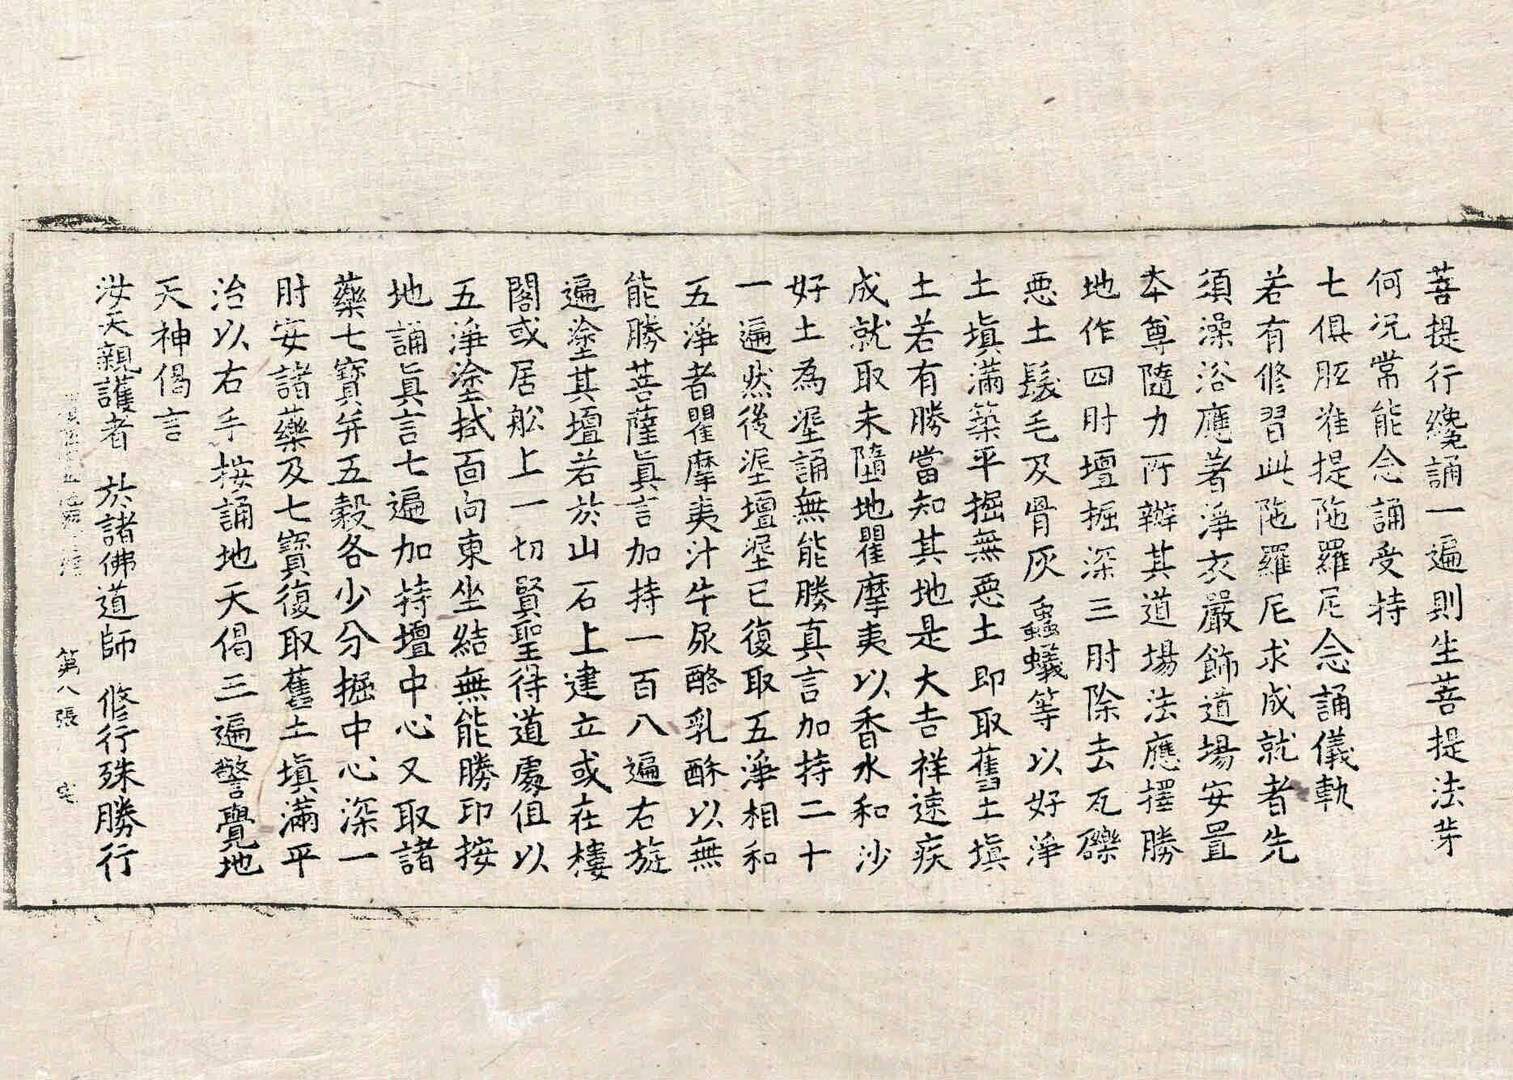 菩提行纔誦一遍則生菩提法芽
何況常能念誦受持
七俱胝准提陁羅尼念誦儀軌
若有修習此陁羅尼求成就者先
須澡浴應著淨衣嚴飾道場安置
本尊隨力所辦其道場法應擇勝
地作四肘壇掘深三肘除去瓦礫
惡土髮毛及骨灰蟲蟻等以好淨
土塡滿築平掘無惡土即取舊土塡
土若有勝當知其地是大吉祥速疾
成就取未墮地瞿摩夷以香水和沙
好土為埿誦無能勝真言加持二十
一遍然後埿壇埿已復取五淨相和
五淨者瞿摩夷汁牛尿酪乳酥以無
能勝菩薩眞言加持一百八遍右旋
遍塗其壇若於山石上建立或在樓
閣或居舩上一切賢聖得道處但以
五淨塗拭面向東坐結無能勝印按
地誦眞言七遍加持壇中心又取諸
藥七寶并五穀各少分掘中心深一
肘安諸藥及七寶復取舊土塡滿平
治以右手按誦地天偈三遍警覺地
天神偈言
汝天親護者 於諸佛道師 修行殊勝行
第八張 宅